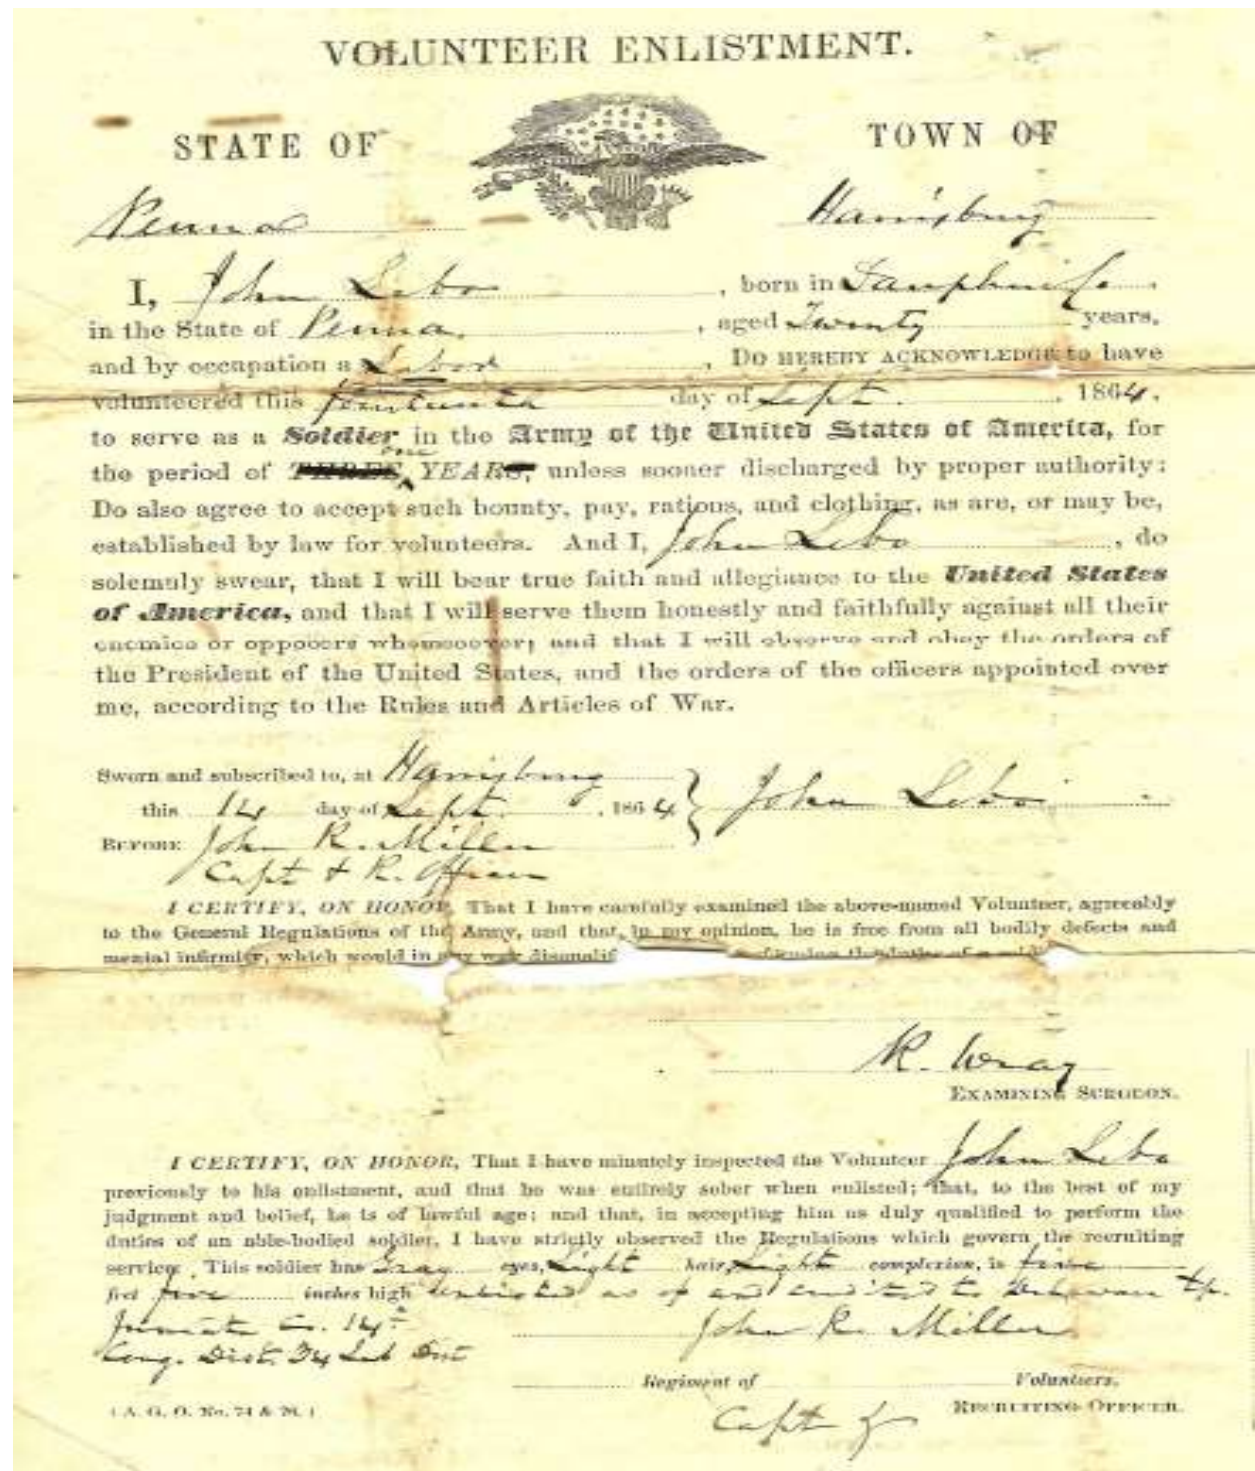 VOLUNTEER ENLISTMENT.
STATE OF TOWN OF
Penna Harrisburg
I, John Lebo, born in Dauphin Co.
in the State of Penna, aged Twenty years,
and by occupation a Labor, DO HEREBY ACKNOWLEDGE to have
volunteered this fourteenth day of Sept. 1864,
to serve as a Soldier in the Army of the United States of America, for
one
the period of THREE YEARS, unless sooner discharged by proper authority:
Do also agree to accept such bounty, pay, rations, and clothing, as are, or may be,
established by law for volunteers. And I, John Lebo, do
solemnly swear, that I will bear true faith and allegiance to the United States
of America, and that I will serve them honestly and faithfully against all their
enemies or opposers whomsoever; and that I will observe and obey the orders of
the President of the United States, and the orders of the officers appointed over
me, according to the Rules and Articles of War.
Sworn and subscribed to, at Harrisburg
this 14 day of Sept. 1864 John Lebo
BEFORE John R. Miller
Capt & R. Officer
I CERTIFY, ON HONOR, That I have carefully examined the above-named Volunteer, agreeably
to the General Regulations of the Army, and that, in my opinion, he is free from all bodily defects and
mental infirmity, which would in any way disqualif
R. Wray
EXAMINING SURGEON.
I CERTIFY, ON HONOR, That I have minutely inspected the Volunteer John Lebo
previously to his enlistment, and that he was entirely sober when enlisted; that, to the best of my
judgment and belief, he is of lawful age; and that, in accepting him as duly qualified to perform the
duties of an able-bodied soldier, I have strictly observed the Regulations which govern the recruiting
service. This soldier has Gray eyes, Light hair, Light complexion, is five
feet five inches high Enlisted as of and credited to Delaware Tp.
Juniata Co. 14th
Cong. Dist. 34 Sub Dist
John R. Miller
Regiment of Volunteers,
(A. G. O. No. 74 & 76.) Capt RECRUITING OFFICER.